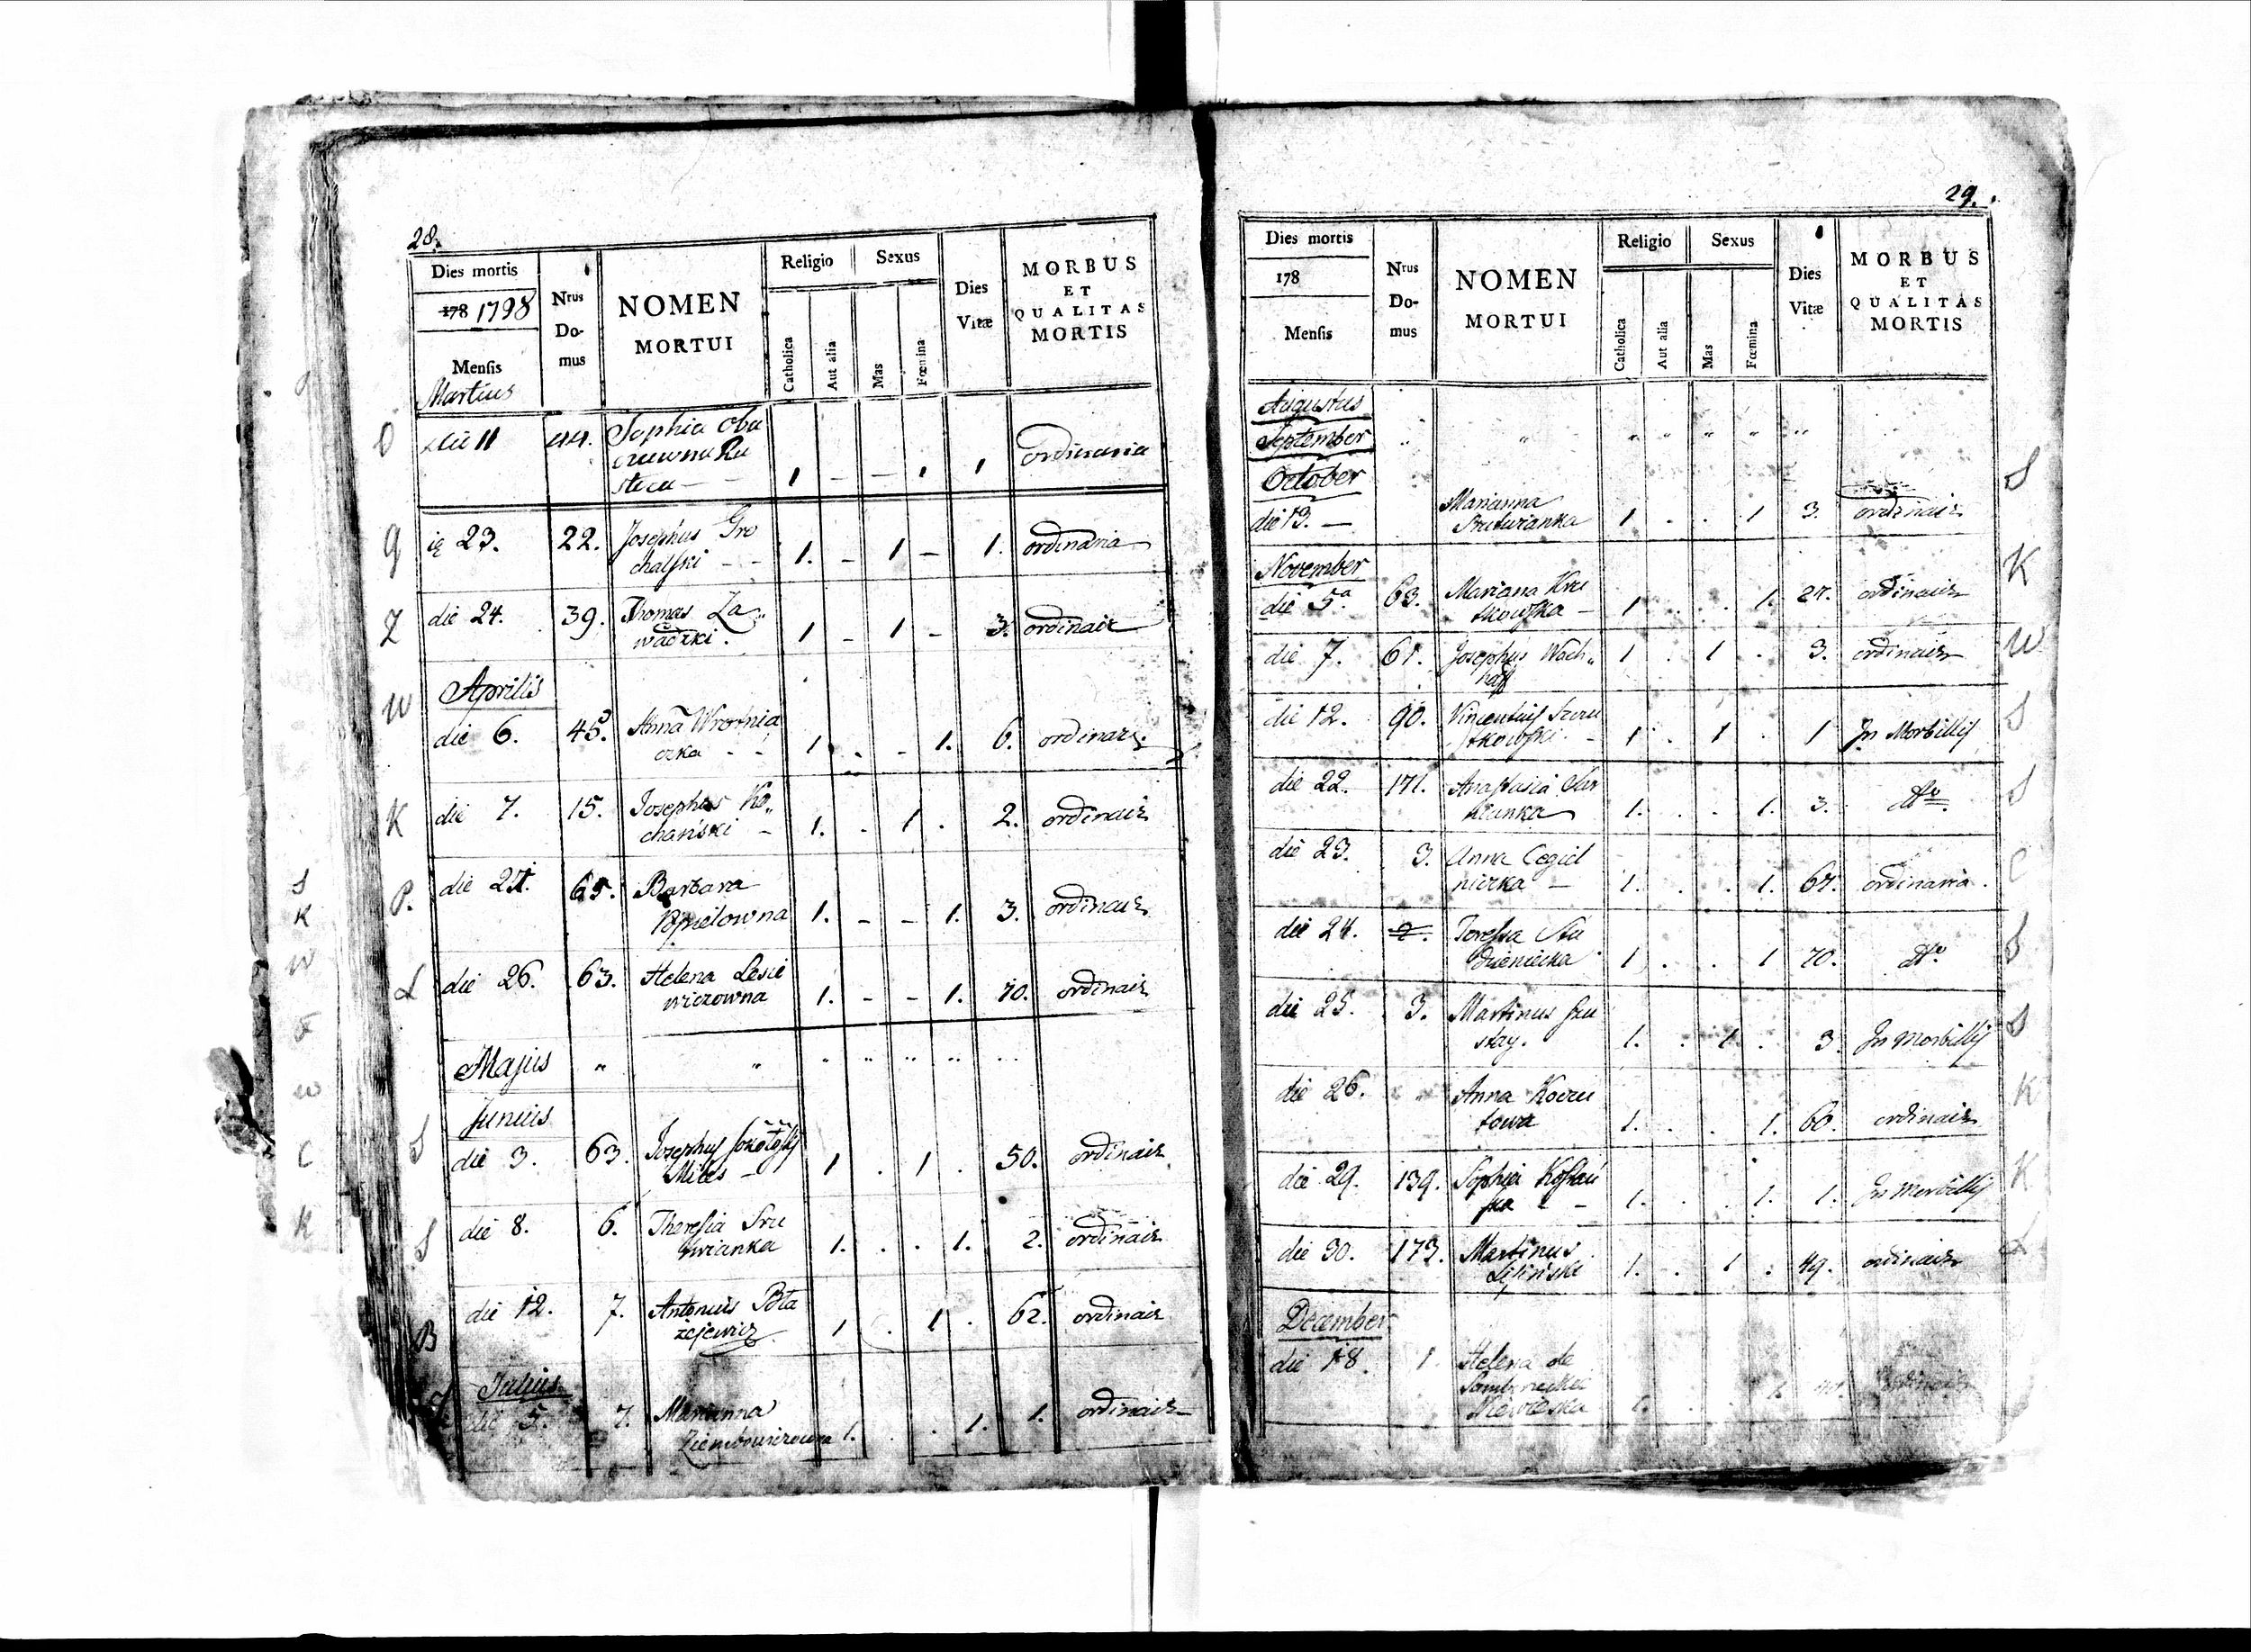 28.
Dies mortis
178 1798
Mensis
Martius
Nrus
Do-
mus
NOMEN
MORTUI
Religio
Catholica
Aut alia
Sexus
Mas
Fœmina
Dies
Vitæ
MORBUS
ET
QUALITAS
MORTIS
O die 11 44. Sophia
1 - - 1 1 ordinaria
G 23. 22. Josephus Gro
chalski - - 1. - 1 - 1. ordinaria
Z die 24. 39. Thomas Za„
wadzki. 1 - 1 - 3. ordinair
Aprilis
W die 6. 45. Anna Wrotnia
czka - - 1. - - 1. 6. ordinair
K die 7. 15. Josephus Ko„
chański - 1. . 1 . 2. ordinair
P. die 24. 65. Barbara
Popielowna 1. - - 1. 3. ordinair
L die 26. 63. Helena Lesie
wiczowna 1. - - 1. 70. ordinair
Majus „ „
Junius
S die 3. 63. Josephus
Miles - 1 . 1 . 50. ordinair
S die 8. 6. Theresia Sru
wianka 1. . . 1. 2. ordinair
B die 12. 7. Antonius Bła
żejewicz 1 . 1 . 62. ordinair
Julius
die 5. 7. Marianna
Ziembowiczowna 1. . . 1. 1. ordinair
S
K
W
F
W
C
K
29.
Dies mortis
178
Mensis
Nrus
Do-
mus
NOMEN
MORTUI
Religio
Catholica
Aut alia
Sexus
Mas
Fœmina
Dies
Vitæ
MORBUS
ET
QUALITAS
MORTIS
Augustus
September
October
die 13. - Marianna
1 . . 1 3. ordinair S
November
die 5a 63. Mariana
1 . . 1. 27. ordinair K
die 7. 61. Josephus Woch„
1 . 1 . 3. ordinair W
die 12. 90. Vincentius
1 . 1 . 1 In Morbillis S
die 22. 171. Anastasia
1. . . 1. 3. dto. S
die 23. 3. Anna Cegiel
niczka - 1. . . 1. 67. ordinaria. C
die 24. 2. Teressa Stu
dzieniecka 1 . . 1 70. dto S
die 25. 3. Martinus
1. . 1 . 3. In Morbillis S
die 26. Anna
towa 1. . . 1. 60. ordinair K
die 29. 139. Sophia
1. . . 1. 1. In Morbillis K
die 30. 173. Martinus
Lipiński 1. . 1 . 49. ordinair L
December
die 18 1. Helena de